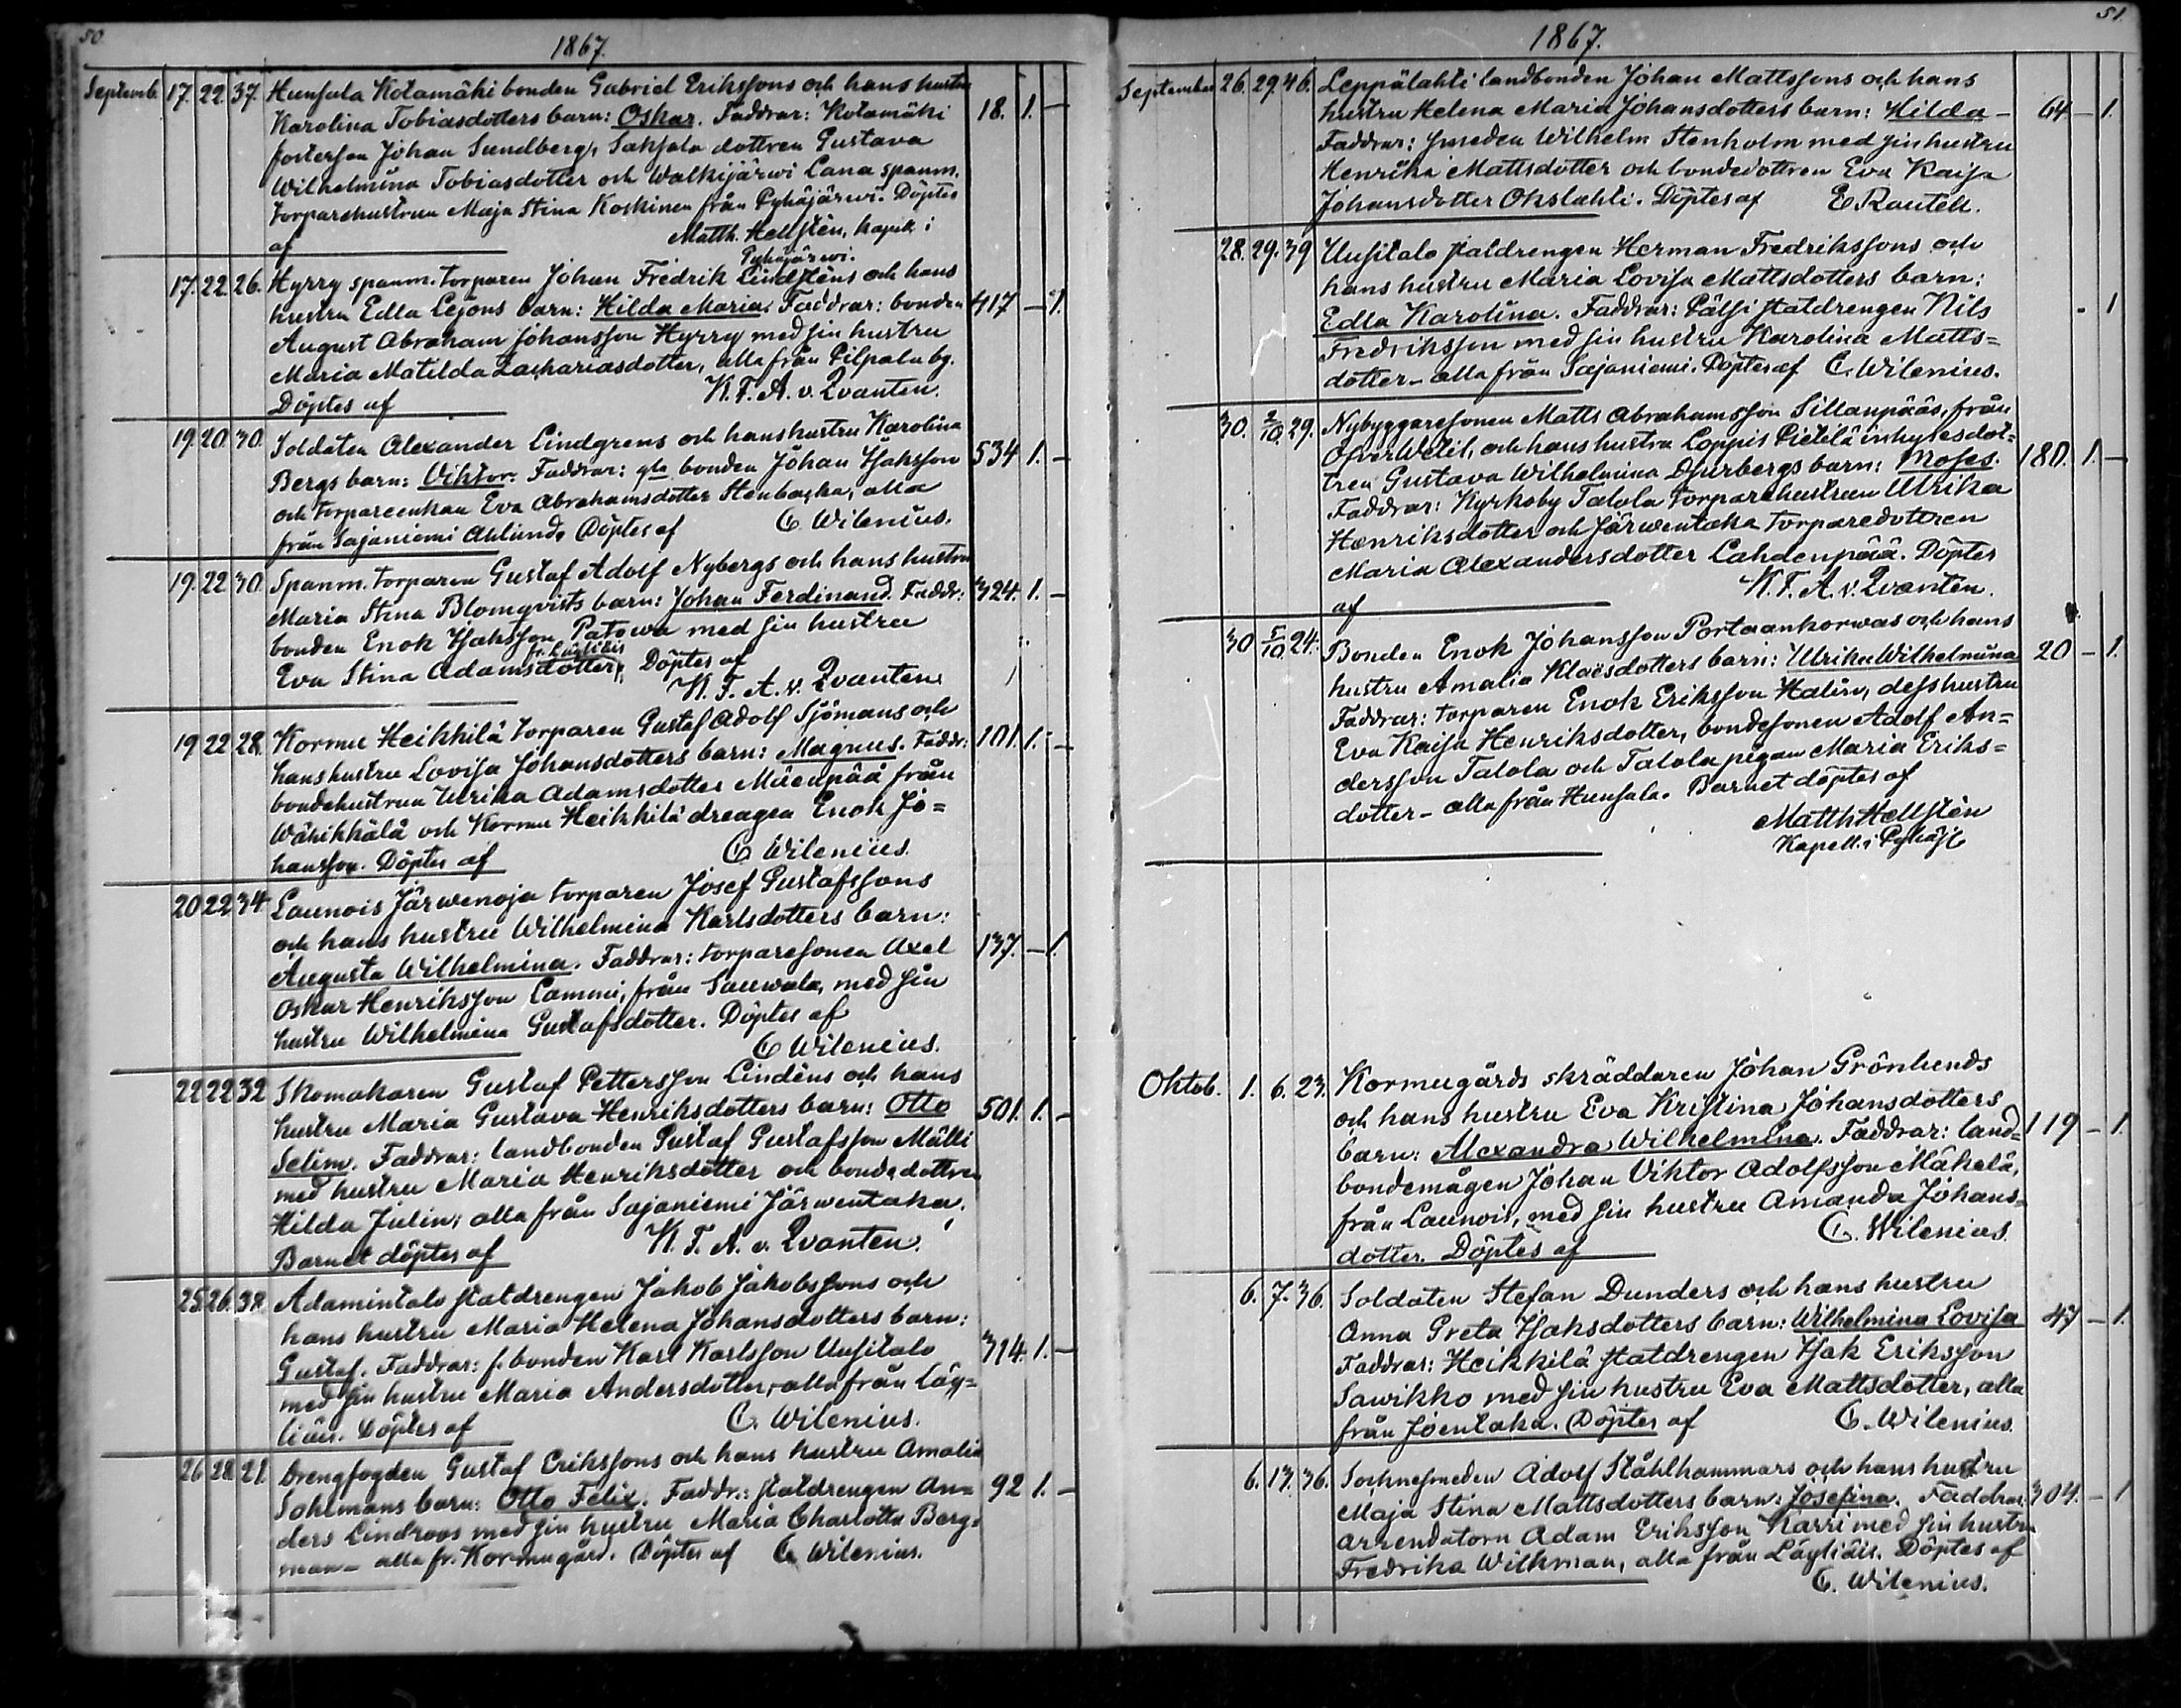 50
1867.
Septemb. 17. 22. 37. Hunsala Kotamäki bonden Gabriel Erikssons och hans hustru
Karolina Tobiasdotters barn: Oskar. Faddrar: Kotamäki 18. 1. —
fosterson Johan Sundberg, Saksala dottren Gustava
Wilhelmina Tobiasdotter och Walkijärwi Lana spanm.
torparehustrun Maja Stina Koskinen från Pyhäjärwi. Döptes
af Matth. Hellstén, kapell. i
Pyhäjärwi.
17. 22. 26. Hyrry spanm. torparen Johan Fredrik Lindsténs och hans
hustru Edla Lejons barn: Hilda Maria. Faddrar: bonden 417 — 1.
August Abraham Johansson Hyrry med sin hustru
Maria Matilda Zachariasdotter, alla från Pilpala by.
Döptes af K. F. A. v. Qvanten.
19. 20. 30. Soldaten Alexander Lindgrens och hans hustru Karolina
Bergs barn: Viktor. Faddrar: gla bonden Johan Isaksson 534 1. —
och torpareenkan Eva Abrahamsdotter Stenbacka, alla
från Sajaniemi Ahlund. Döptes af C. Wilenius.
19. 22 30. Spanm. torparen Gustaf Adolf Nybergs och hans hustru
Maria Stina Blomqvists barn: Johan Ferdinand. Faddr: 324. 1. —
bonden Enok Isaksson Patowa med sin hustru
fr. Läyliäis
Eva Stina Adamsdotter, Döptes af
K. F. A. v. Qvanten.
19 22 28. Kormu Heikkilä torparen Gustaf Adolf Sjömans och
hans hustru Lovisa Johansdotters barn: Magnus. Faddr: 101. 1. —
bondehustrun Ulrika Adamsdotter Mäenpää från
Wähikkälä och Kormu Heikkilä drengen Enok Jo=
hansson. Döptes af C. Wilenius.
20 22 34 Launois Järwenoja torparen Josef Gustafssons
och hans hustru Wilhelmina Karlsdotters barn:
Augusta Wilhelmina. Faddrar: torparesonen Axel 137. — 1.
Oskar Henriksson Lammi, från Sauwala, med sin
hustru Wilhelmina Gustafsdotter. Döptes af
C. Wilenius.
22 22 32 Skomakaren Gustaf Pettersson Lindéns och hans
hustru Maria Gustava Henriksdotters barn: Otto 501. 1. —
Selim. Faddrar: landbonden Gustaf Gustafsson Mälli
med hustru Maria Henriksdotter och bondedottren
Hilda Julin; alla från Sajaniemi Järwentaka.
Barnet döptes af K. F. A. v. Qvanten.
25. 26. 38. Adamintalo statdrengen Jakob Jakobssons och
hans hustru Maria Helena Johansdotters barn:
Gustaf. Faddrar: f. bonden Karl Karlsson Uusitalo 314. 1. —
med sin hustru Maria Andersdotter, alla från Läy=
liäis. Döptes af C. Wilenius.
26 28. 21. Drengfogden Gustaf Erikssons och hans hustru Amalia
Sohlmans barn: Otto Felix. Faddr.: statdrengen An= 92 1. —
ders Lindroos med sin hustru Maria Charlotta Berg=
man — alla fr. Kormugård. Döptes af C. Wilenius.
51.
1867.
September 26. 29. 46. Leppälahti landbonden Johan Mattssons och hans
hustru Helena Maria Johansdotters barn: Hilda — 64 — 1.
Faddrar: smeden Wilhelm Stenholm med sin hustru
Henrika Mattsdotter och bondedottren Eva Kaisa
Johansdotter Okslahti. Döptes af E. Rautell.
28. 29. 39 Uusitalo statdrengen Herman Fredrikssons och
hans hustru Maria Lovisa Mattsdotters barn:
Edla Karolina. Faddrar: Pälsi statdrengen Nils - 1
Fredriksson med sin hustru Karolina Matts=
dotter — alla från Sajaniemi. Döptes af C. Wilenius.
30. 2/10. 29. Nybyggaresonen Matts Abrahamsson Sillanpääs, från
ÖfverWetil, och hans hustru Loppis Pietilä inhysesdot=
tren Gustava Wilhelmina Djurbergs barn: Moses. 180. 1. —
Faddrar: Kyrkoby Talola torparehustrun Ulrika
Henriksdotter och Järwentaka torparedottren
Maria Alexandersdotter Lahdenpää. Döptes
af K. F. A. v. Qvanten.
30 5/10. 24. Bonden Enok Johansson Portaankorwas och hans
hustru Amalia Klaesdotters barn: Ulrika Wilhelmina 20 — 1.
Faddrar: torparen Enok Eriksson Halin, dess hustru
Eva Kaisa Henriksdotter, bondesonen Adolf An=
dersson Talola och Talola pigan Maria Eriks=
dotter — alla från Hunsala. Barnet döptes af
Matth Hellstén
Kapell. i Pyhäj.
Oktob. 1. 6. 23. Kormugårds skräddaren Johan Grönlunds
och hans hustru Eva Kristina Johansdotters
barn: Alexandra Wilhelmina. Faddrar: land= 119 — 1.
bondemågen Johan Viktor Adolfsson Mäkelä,
från Launois, med sin hustru Amanda Johans=
dotter. Döptes af C. Wilenius.
6. 7. 36. Soldaten Stefan Dunders och hans hustru
Anna Greta Isaksdotters barn: Wilhelmina Lovisa 47 — 1.
Faddrar: Heikkilä statdrengen Isak Eriksson
Sawikko med sin hustru Eva Mattsdotter, alla
från Joentaka. Döptes af C. Wilenius.
6. 13. 36. Socknesmeden Adolf Stålhammars och hans hustru
Maja Stina Mattsdotters barn: Josefina. Faddrar: 304. — 1
arrendatorn Adam Eriksson Karri med sin hustru
Fredrika Wilkman, alla från Läyliäis. Döptes af
C. Wilenius.